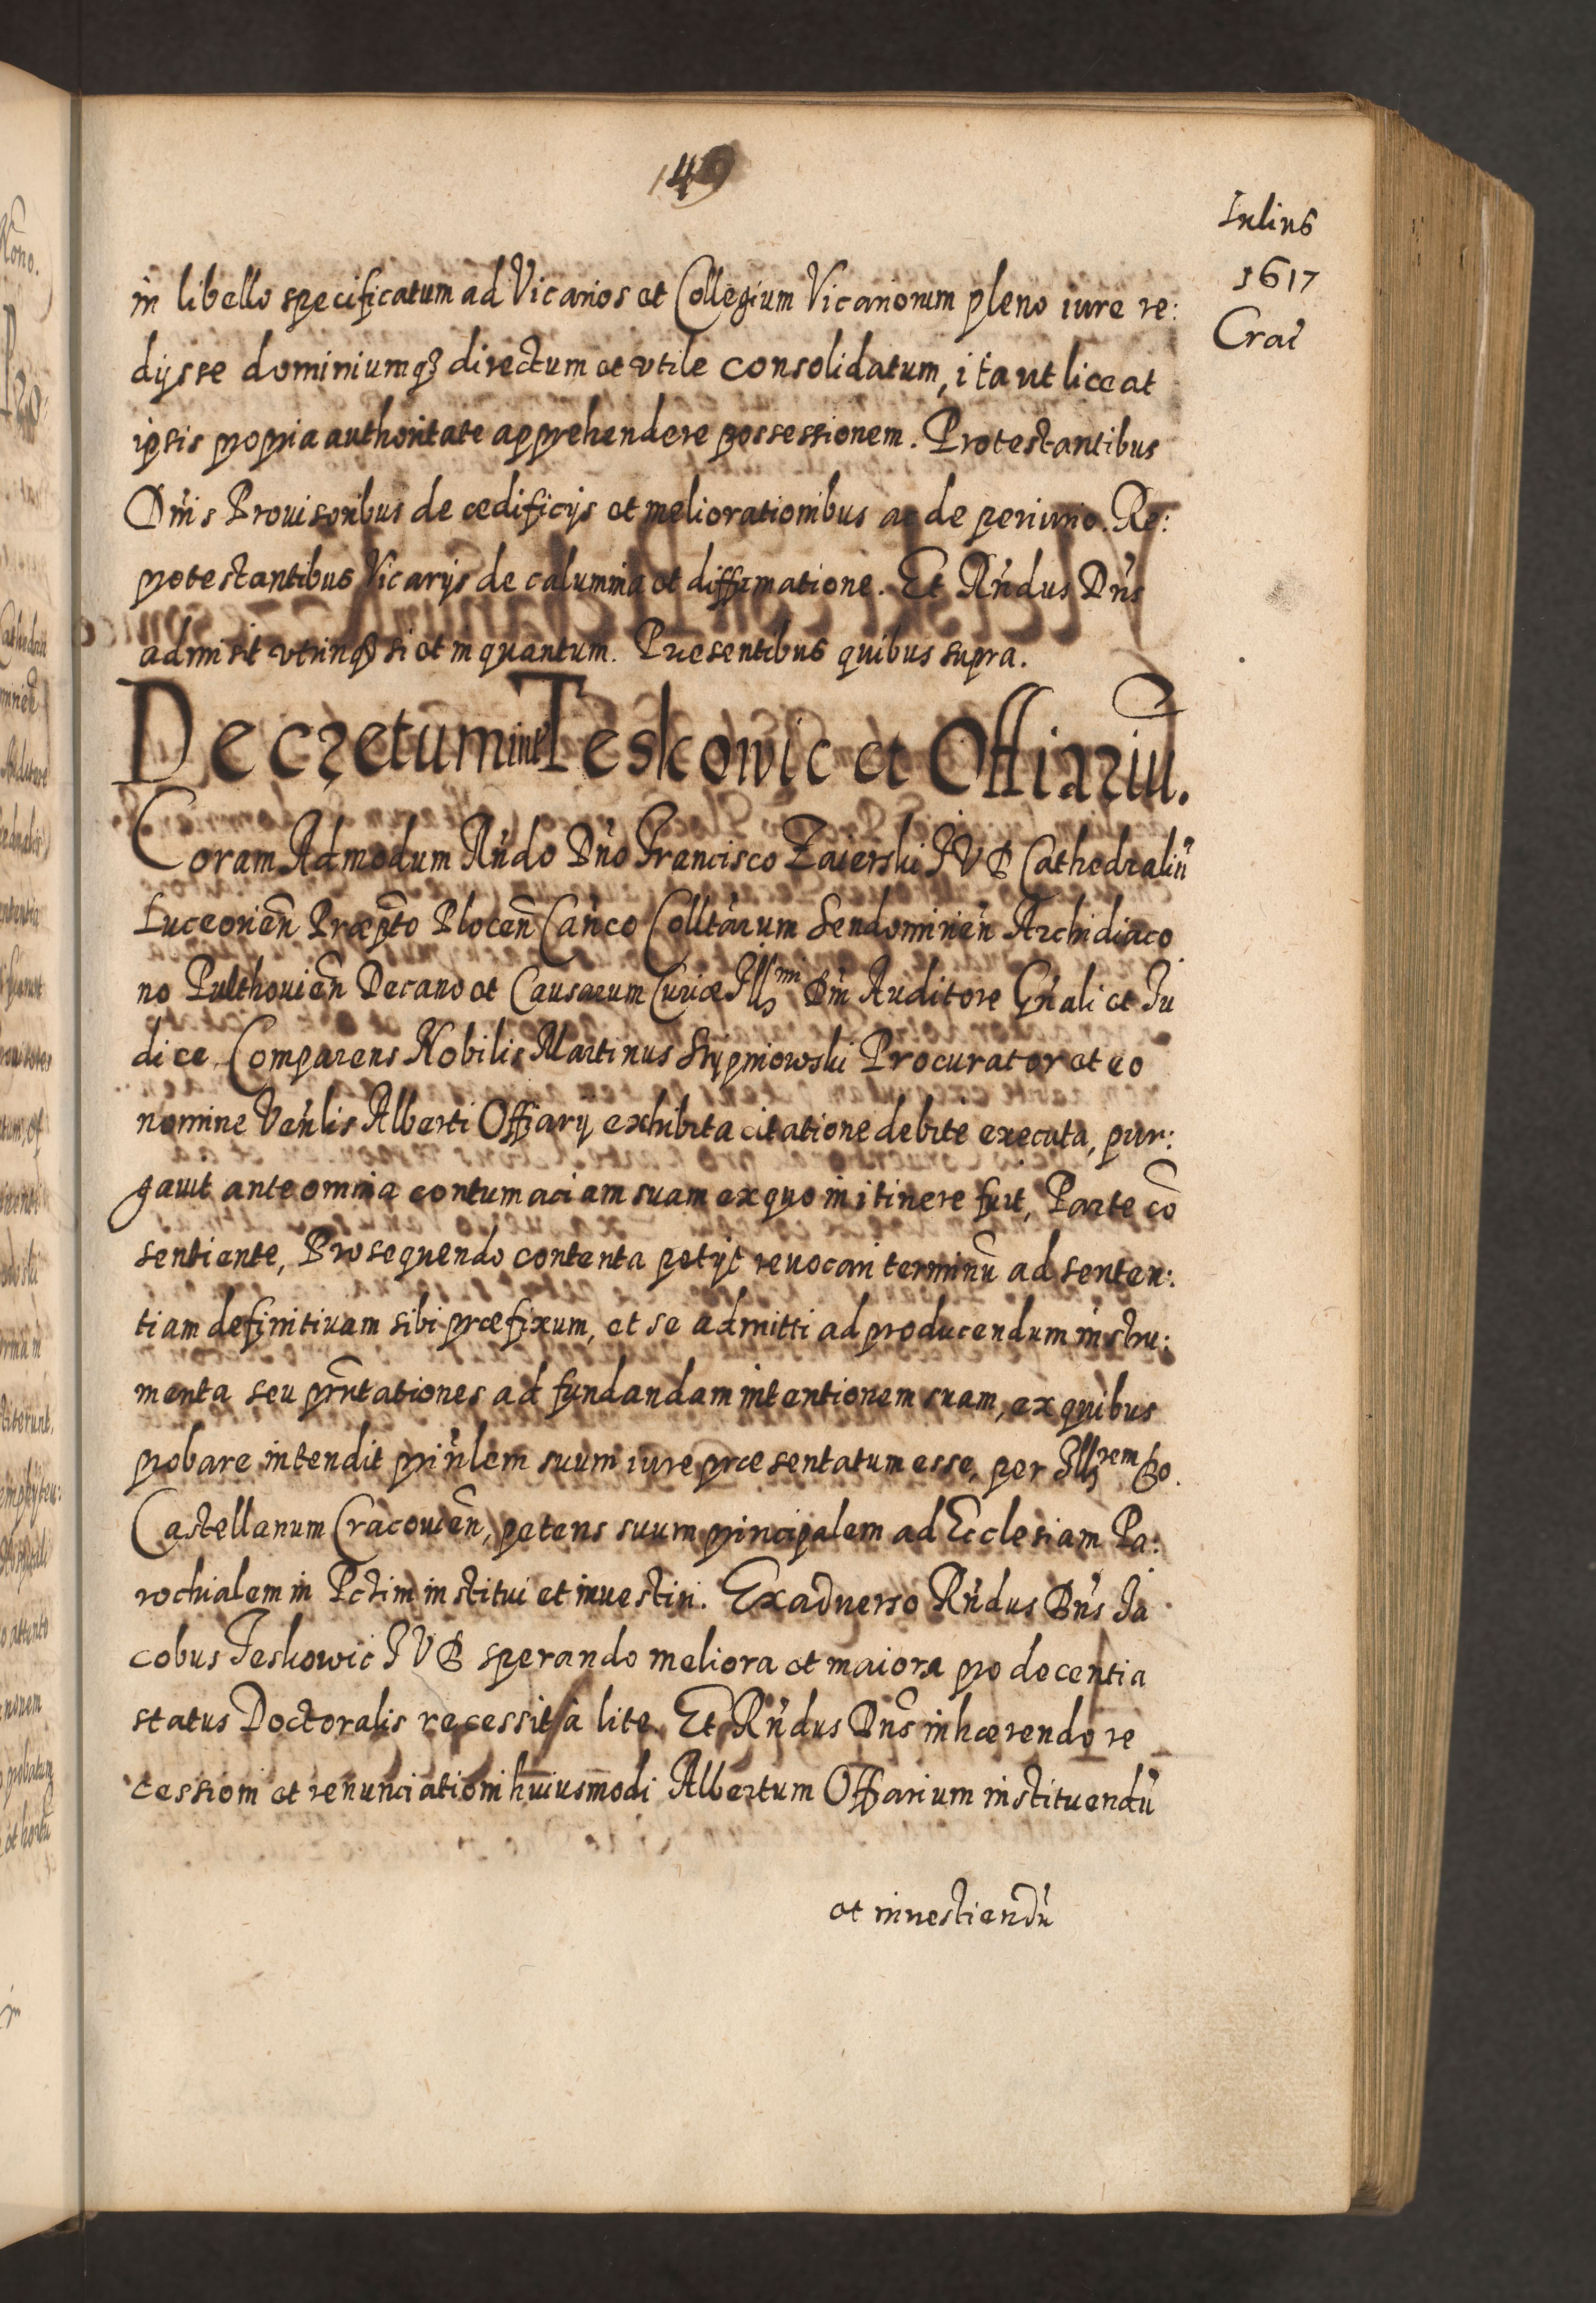 149
Iulius
1617
Crac̃
in libello specificatum ad Vicarios et Collegium Vicariorum pleno iure re:
dijsse dominiumq3 directum et vtile consolidatum, ita ut liceat
ipsis propria authoritate apprehendere possessionem. Protestantibus
Dn̄is Prouisoribus de ædificijs et meliorationibus ac de periurio. Re:
protestantibus Vicarijs de calumnia et diffamatione. Et Rn̄dus Dn̄s
admisit vtrinq3 si et in quantum. Presentibus quibus supra.
Decretum int̃ Teskowic et Offiariũ.
Coram Admodum Rn̄do Dn̄o Francisco Zaierski IVD Cathedraliũ
Luceorien̄ Præpt̄o Plocen̄ Can̄co Collt̄arum Sendomirien̄ Archidiaco
no Pulthouien̄ Decano et Causarum Curiæ Illmi Dn̄i Auditore Gn̄ali et Iu
dice. Comparens Nobilis Martinus Stypniowski Procurator et eo
nomine Ven̄lis Alberti Offiarij exhibita citatione debite executa, pur:
gauit ante omnia contumaciam suam ex quo in itinere fuit, Parte cō
sentiente, Prosequendo contenta petijt reuocari terminū ad senten:
tiam definitiuam sibi præfixum, et se admitti ad producendum instru:
menta seu prn̄tationes ad fundandam intentionem suam, ex quibus
probare intendit prin̄lem suum iure præsentatum esse, per Illrem Do.
Castellanum Cracouien̄, petens suum principalem ad Ecclesiam Pa:
rochialem in Pctim institui et inuestiri. Ex aduerso Rn̄dus Dn̄s Ia
cobus Teskowic IVD sperando meliora et maiora pro decentia
status Doctoralis recessit à lite. Et Rn̄dus Dn̄s inhærendo re
cessioni et renunciationi huiusmodi Albertum Offiarium instituendũ
et inuestiendũ